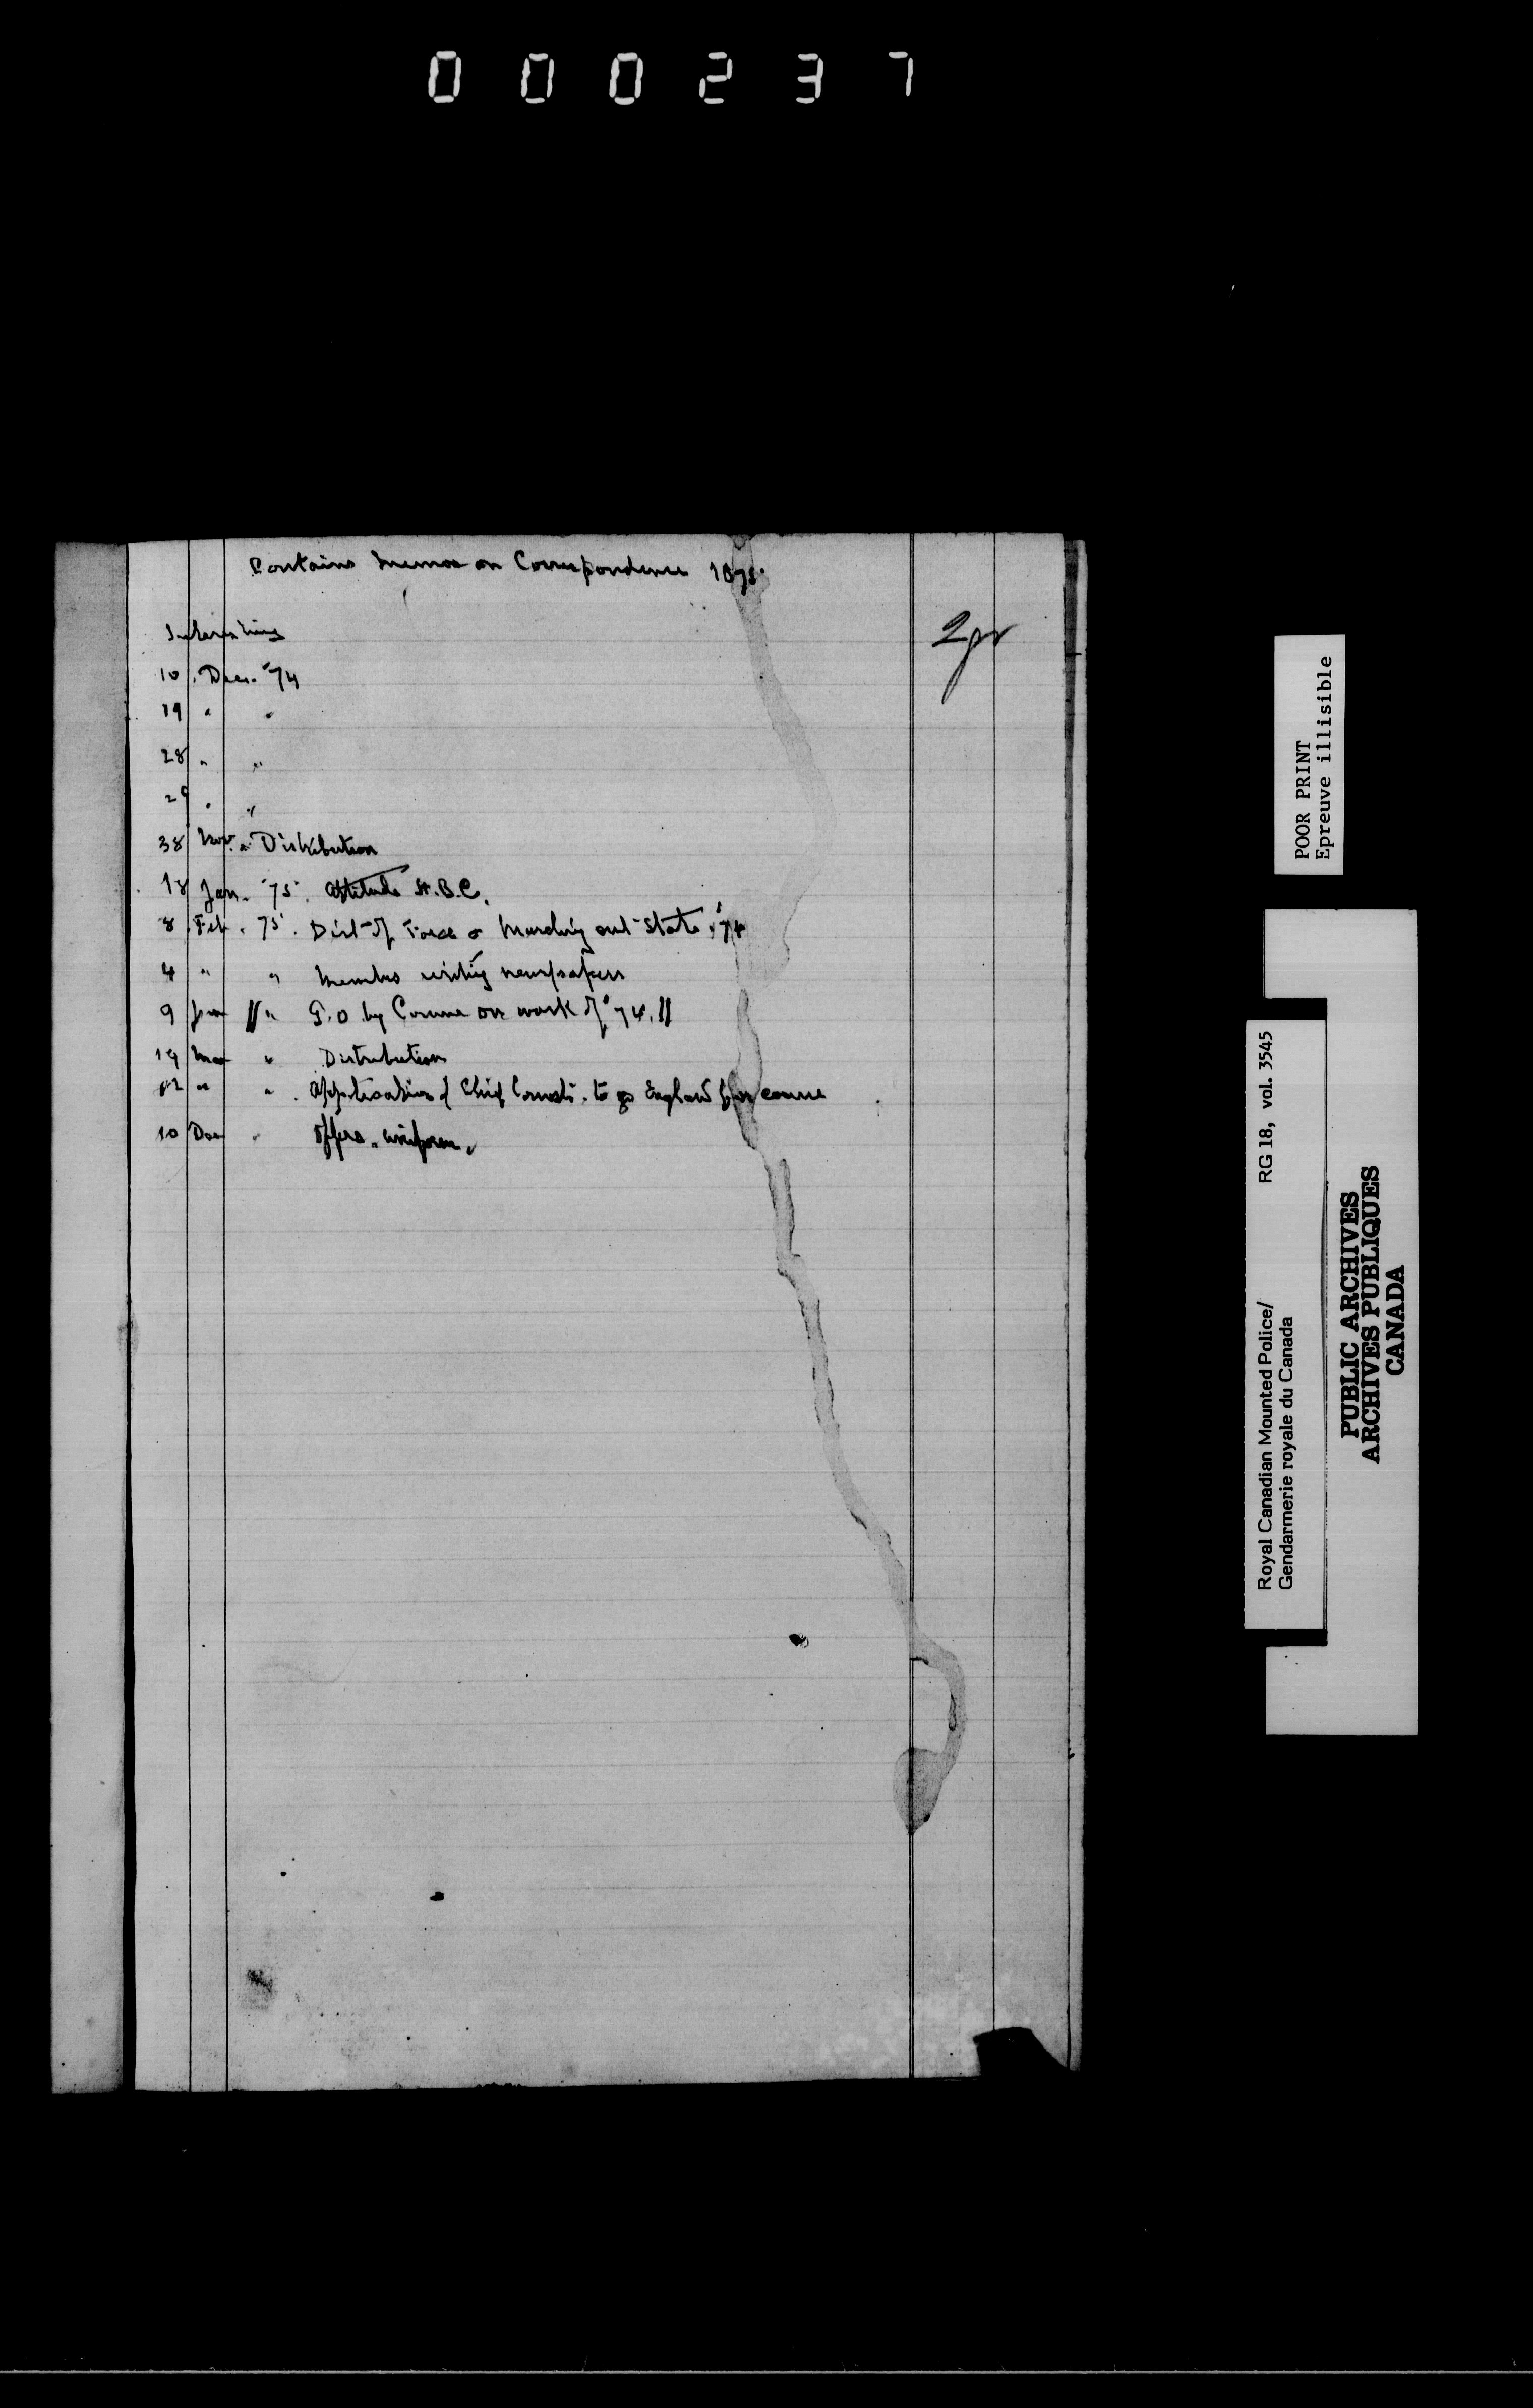 0 0 0 2 3 7
Contains memos on Correspondence 1875.
Interesting
2pr
10 . Dec. '74
19 " "
28 " "
29 " "
38 Nov. " Distribution
18 Jan. '75. Attitude H.B.C.
8 Feb. 75. Dist of Force & Marching out State '74
4 " " Members writing newspapers
9 Jan // " G.O. by Comm on work of '74. //
19 Mar " Distribution
12 " " . Application of Chief Const. to go England for course
10 Dec " Offrs. uniform.
POOR PRINT
Epreuve illisible
Royal Canadian Mounted Police/ RG 18, vol. 3545
Gendarmerie royale du Canada
PUBLIC ARCHIVES
ARCHIVES PUBLIQUES
CANADA